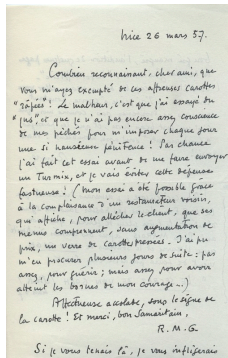 Nice 26 mars 57.
Combien reconnaissant, cher ami, que
vous m'ayez exempté de ces affreuses carottes
"râpées"! Le malheur, c'est que j'ai essayé du
"jus", et que je n'ai pas encore assez conscience
de mes péchés pour m'imposer chaque jour
une si nauséeuse pénitence! Par chance
j'ai fait cet essai avant de me faire envoyer
un Turmix, et je vais éviter cette dépense
fastueuse! (mon essai a été possible grâce
à la complaisance d'un restaurateur voisin,
qui affiche, pour allécher le client, que ses
menus comprennent, sans augmentation de
prix, un verre de carottes pressées. J'ai pu
m'en procurer plusieurs jours de suite: pas
assez, pour guérir; mais assez pour avoir
atteint les bornes de mon courage...)
Affectueuse accolade, sous le signe de
la carotte! Et merci, bon Samaritain,
R. M. G.
Si je vous tenais là, je vous infligerais